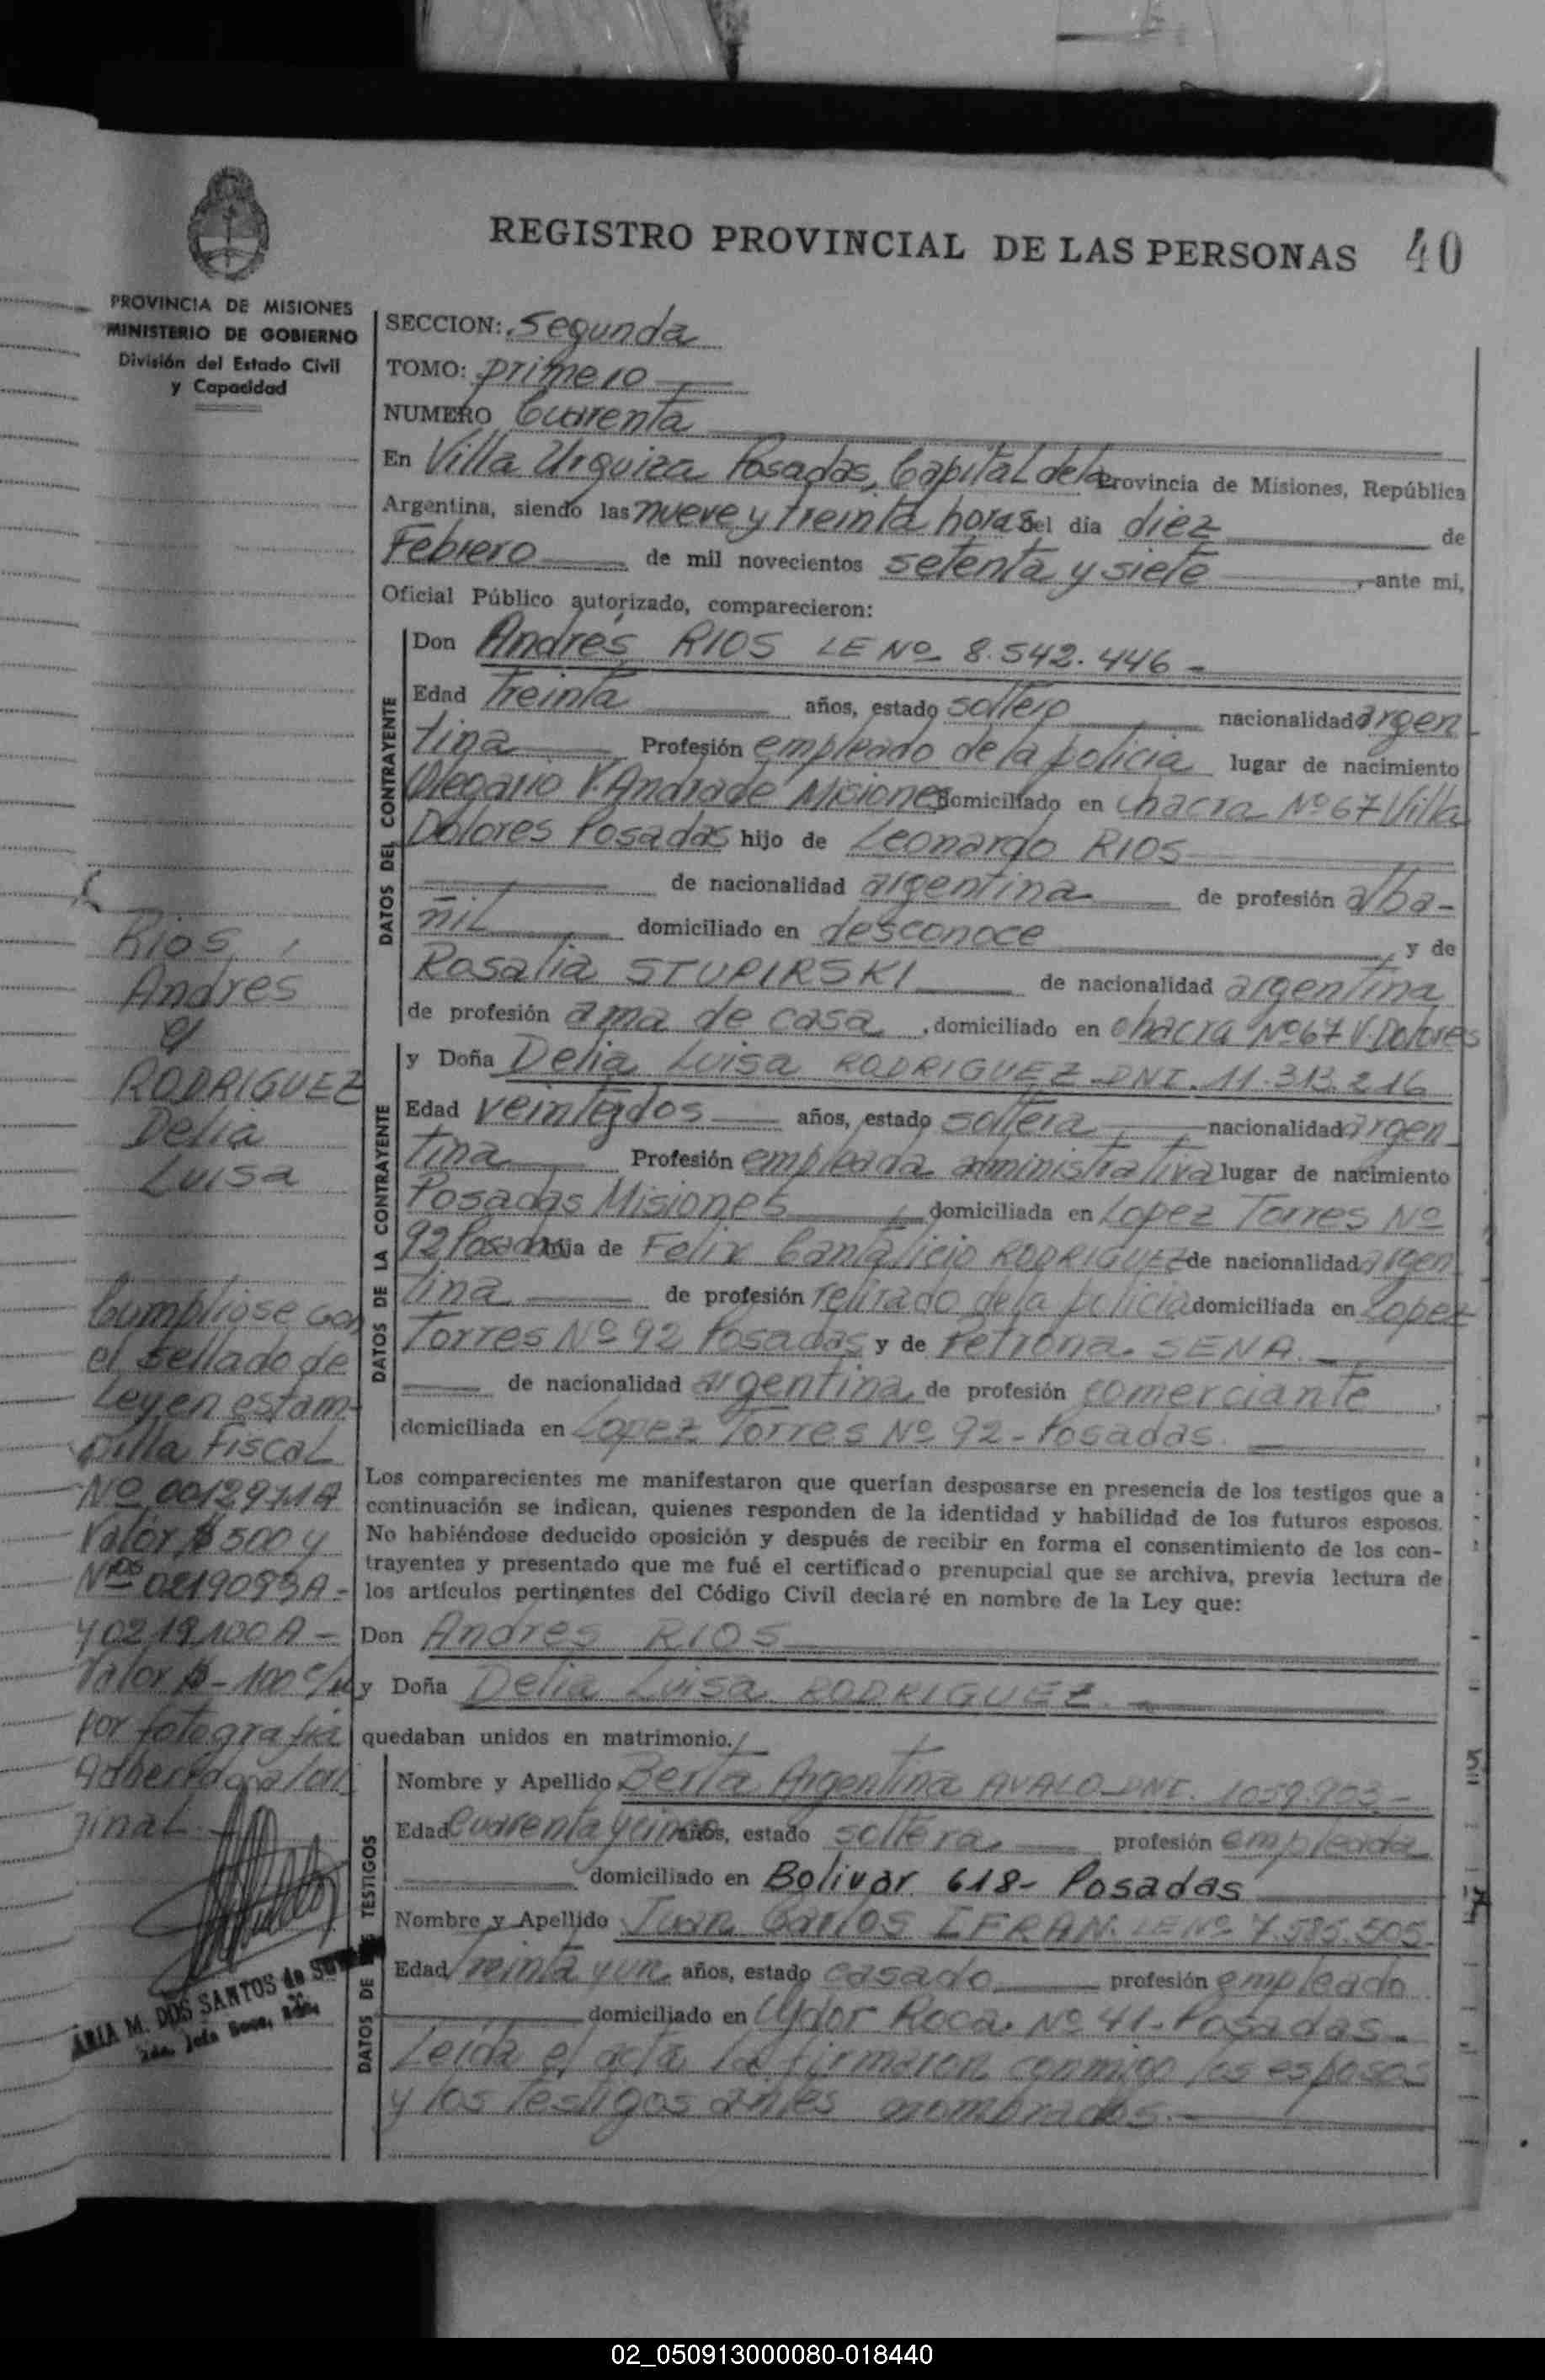 REGISTRO PROVINCIAL DE LAS PERSONAS 40
PROVINCIA DE MISIONES
MINISTERIO DE GOBIERNO
División del Estado Civil
y Capacidad
SECCION: Segunda
TOMO: primero
NUMERO Cuarenta
En Villa Urquiza Posadas, Capital de la Provincia de Misiones, República
Argentina, siendo las nueve y treinta horas del día diez de
Febrero de mil novecientos setenta y siete, ante mi,
Oficial Público autorizado, comparecieron:
DATOS DEL CONTRAYENTE
Don Andrés RIOS LE Nº 8.542.446-
Edad Treinta años, estado soltero nacionalidad argen
tina Profesión empleado de la policia lugar de nacimiento
Olegario V. Andrade Misiones domiciliado en chacra Nº 67 Villa
Dolores Posadas hijo de Leonardo RIOS
de nacionalidad argentina de profesión alba-
ñil domiciliado en desconoce, y de
Rosalia STUPIRSKI de nacionalidad argentina
de profesión ama de casa, domiciliado en chacra Nº 67 V. Dolores
DATOS DE LA CONTRAYENTE
y Doña Delia Luisa RODRIGUEZ-DNI. 11.313.216
Edad veintejdos años, estado soltera nacionalidad argen
tina Profesión empleada administrativa lugar de nacimiento
Posadas Misiones domiciliada en Lopez Torres Nº
92 Posadas hija de Felix Cantalicio RODRIGUEZ de nacionalidad argen
tina de profesión retirado de la policia domiciliada en Lopez
Torres Nº 92 Posadas y de Petrona SENA.
de nacionalidad argentina, de profesión comerciante,
domiciliada en Lopez Torres Nº 92-Posadas.
Los comparecientes me manifestaron que querían desposarse en presencia de los testigos que a
continuación se indican, quienes responden de la identidad y habilidad de los futuros esposos.
No habiéndose deducido oposición y después de recibir en forma el consentimiento de los con-
trayentes y presentado que me fué el certificado prenupcial que se archiva, previa lectura de
los artículos pertinentes del Código Civil declaré en nombre de la Ley que:
Don Andres RIOS
y Doña Delia Luisa RODRIGUEZ.
quedaban unidos en matrimonio.
DATOS DE TESTIGOS
Nombre y Apellido Berta Argentina AVALO-DNI. 1059.903-
Edad cuarenta y cinco años, estado soltera profesión empleada
domiciliado en Bolivar 618- Posadas
Nombre y Apellido Juan Carlos IFRAN. LE Nº 7.585.505.
Edad treinta y un años, estado casado profesión empleado
domiciliado en Roca. Nº 41-Posadas-
Leída el acta la firmaron conmigo los esposos
y los testigos antes nombrados.-
Rios,
Andres
y
RODRIGUEZ
Delia
Luisa
Cumpliose con
el sellado de
Ley en estam-
pilla Fiscal
Nº 0012971A
Valor $ 500 y
Nºs 0219099A-
y 0219100A-
Valor $-100 c/u
por fotografia
Adherida a la ori
ginal.-
ARIA M. DOS SANTOS de
02_050913000080-018440